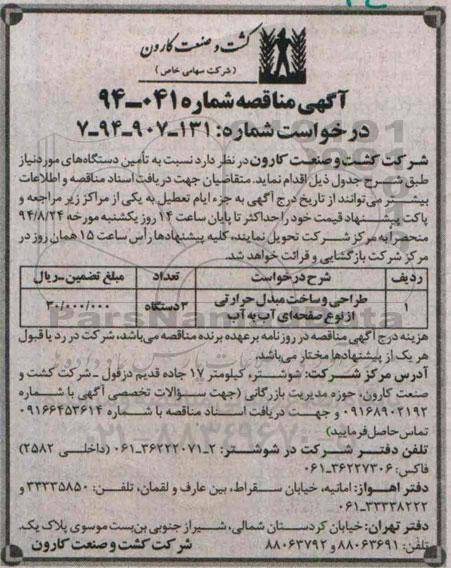 کشت و صنعت کارون
(شرکت سهامی خاص)
آگهی مناقصه شماره ۰۴۱-۹۴
درخواست شماره: ۱۳۱-۹۰۷-۹۴-۷
شرکت کشت و صنعت کارون در نظر دارد نسبت به تأمین دستگاه‌های مورد نیاز
طبق شرح جدول ذیل اقدام نماید. متقاضیان جهت دریافت اسناد مناقصه و اطلاعات
بیشتر می‌توانند از تاریخ درج آگهی به جزء ایام تعطیل به یکی از مراکز زیر مراجعه و
پاکت پیشنهاد قیمت خود را حداکثر تا پایان ساعت ۱۴ روز یکشنبه مورخه ۹۴/۸/۲۴
منحصراً به مرکز شرکت تحویل نمایند، کلیه پیشنهادها رأس ساعت ۱۵ همان روز در
مرکز شرکت بازگشایی و قرائت خواهد شد.
ردیف شرح درخواست تعداد مبلغ تضمین-ریال
۱ طراحی و ساخت مبدل حرارتی از نوع صفحه‌ای آب به آب ۳ دستگاه ۳۰/۰۰۰/۰۰۰
هزینه درج آگهی مناقصه در روزنامه بر عهده برنده مناقصه می‌باشد، شرکت در رد یا قبول
هر یک از پیشنهادها مختار می‌باشد.
آدرس مرکز شرکت: شوشتر، کیلومتر ۱۷ جاده قدیم دزفول - شرکت کشت و
صنعت کارون، حوزه مدیریت بازرگانی (جهت سؤالات تخصصی آگهی با شماره
۰۹۱۶۸۹۰۲۱۹۲ و جهت دریافت اسناد مناقصه با شماره ۰۹۱۶۶۴۵۳۶۱۴
تماس حاصل فرمایید)
تلفن دفتر شرکت در شوشتر: ۲-۳۶۲۲۲۰۷۱-۰۶۱ (داخلی ۲۵۸۲)
فاکس: ۳۶۲۲۷۳۰۶-۰۶۱
دفتر اهواز: امانیه، خیابان سقراط، بین عارف و لقمان، تلفن: ۳۳۳۳۵۸۵۰ و
۳۳۳۳۸۲۲۲-۰۶۱
دفتر تهران: خیابان کردستان شمالی، شیراز جنوبی بن‌بست موسوی پلاک یک.
تلفن: ۸۸۰۶۳۶۹۱ و ۸۸۰۶۳۷۹۲ شرکت کشت و صنعت کارون